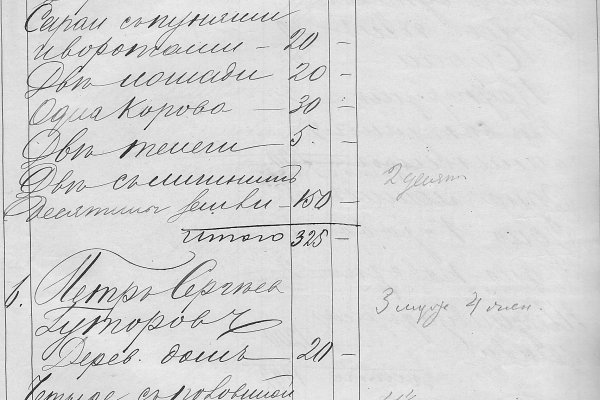 Сараи съ пунями
и воротами – 20 –
Двѣ лошади 20 –
Одна Корова – 30 –
Двѣ телеги 5. –
Двѣ съ
Десятины земли – 150 – 2 десят
Итого 325 –
6. Петръ Сергѣев
Гуторовъ 3 муж 4 жен.
Дерев. домъ – 20 –
съ половиной